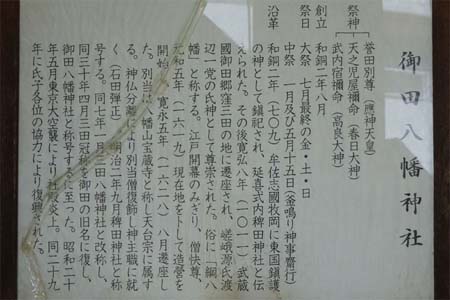 御田八幡神社
祭神 誉田別尊(應神天皇)
天之児屋禰命(春日大神)
武内宿禰命(高良大神)
創立 和銅二年八月
祭日 大祭 七月最終の金・土・日
中祭 一月及び五月十五日(釜鳴り神事齋行)
沿革 和銅二年(七〇九)牟佐志國牧岡に東国鎮護
の神として鎮祀され、延喜式内稗田神社と伝
えられた。その後寛弘八年(一〇一一)武蔵
國御田郷窪三田の地に遷座され、嵯峨源氏渡
辺一党の氏神として尊崇された。俗に「綱八
幡」と称する。江戸開幕のみぎり、僧快尊、
元和五年(一六一九)現在地を卜して造営を
開始し、寛永五年(一六二八)八月遷座し
た。別当は八幡山宝蔵寺と称し天台宗に属す
る。神仏分離のより別当僧復飾し神主職に就
く(石田弾正)。明治二年九月稗田神社と称
号する。同七年一月三田八幡神社と改称し、
同三十年四月三田冠称を御田の旧名に復し、
御田八幡神社と称号するに至った。昭和二十
年五月東京大空襲により社殿炎上。同二十九
年に氏子各位の協力により復興された。